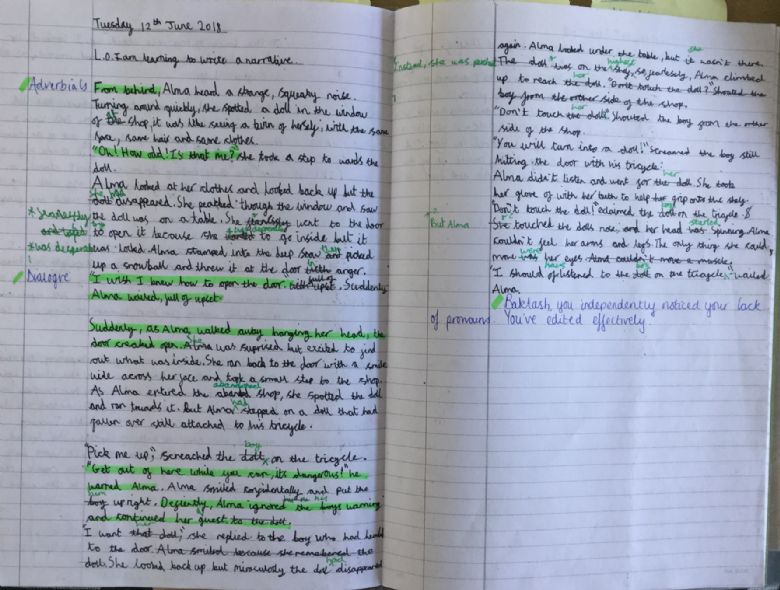 Tuesday 12th June 2018
L.O. I am learning to write a narrative.
Adverbials
From behind, Alma heard a strange, squeaky noise
Turning around quickly, she spotted a doll in the window
of the shop, it was like seeing a twin of herself; with the same
face, same hair and same clothes.
"Oh! How odd! Is that me?" she took a step to wards the
doll.
Alma looked at her clothes and looked back up but the
she had
doll disappeared. She peaked through the window and saw
the doll was on a table. She went to the door
to open it because she wanted to go inside but it
*was desperate was locked. Alma stamped into the deep snow and picked
up a snowball and threw it at the door with anger.
Dialogue
"I wish I knew how to open the door. Suddenly
Alma walked, full of upset
Suddenly, as Alma walked away, hanging her head, the
door creaked open. She Alma was suprised but excited to find
out what was inside. She ran back to the door with a smile
wide across her face and took a small step to the shop.
abandoned
As Alma entered the shop, she spotted the doll
had
and ran towards it. But Alma stepped on a doll that had
fallen over still attached to his tricycle.
boy
"Pick me up," screached the doll on the tricycle.
"Get out of here while you can, it's dangerous!" he
warned Alma. Alma smiled confidentally and put the
him
boy upright. Defiently, Alma ignored the boys warning
and continued her quest to the doll.
"I want that doll," she replied to the boy who had
to the door. Alma smiled because she remembered the
had
doll. She looked back up but miraculously the doll disappeared
again. Alma looked under the table, but it wasn't there.
she
Instead, she was
highest
The doll was on the shelf, so fearlessly, Alma climbed
her
up to reach the doll. "Don't touch the doll?" Shouted the
boy from the other side of the shop.
her
"Don't touch the doll." Shouted the boy from the other
side of the shop.
"You will turn into a doll!" screamed the boy still
hitting the door with his tricycle.
her
Alma didn't listen and went for the doll. She took
her glove of with her teeth to help her grip onto the shelf.
boy
"Don't touch the doll" claimed the doll on the tricycle.
But Alma
started
She touched the dolls nose, and her head was spinning. Alma
couldn't feel her arms and legs. The only thing she could
were
move was her eyes. Alma couldn't move a muscle,
have
boy
"I should of listened to the doll on one tricycle," wailed
Alma.
Baktash, you independently noticed your lack
of pronouns. You've edited effectively.